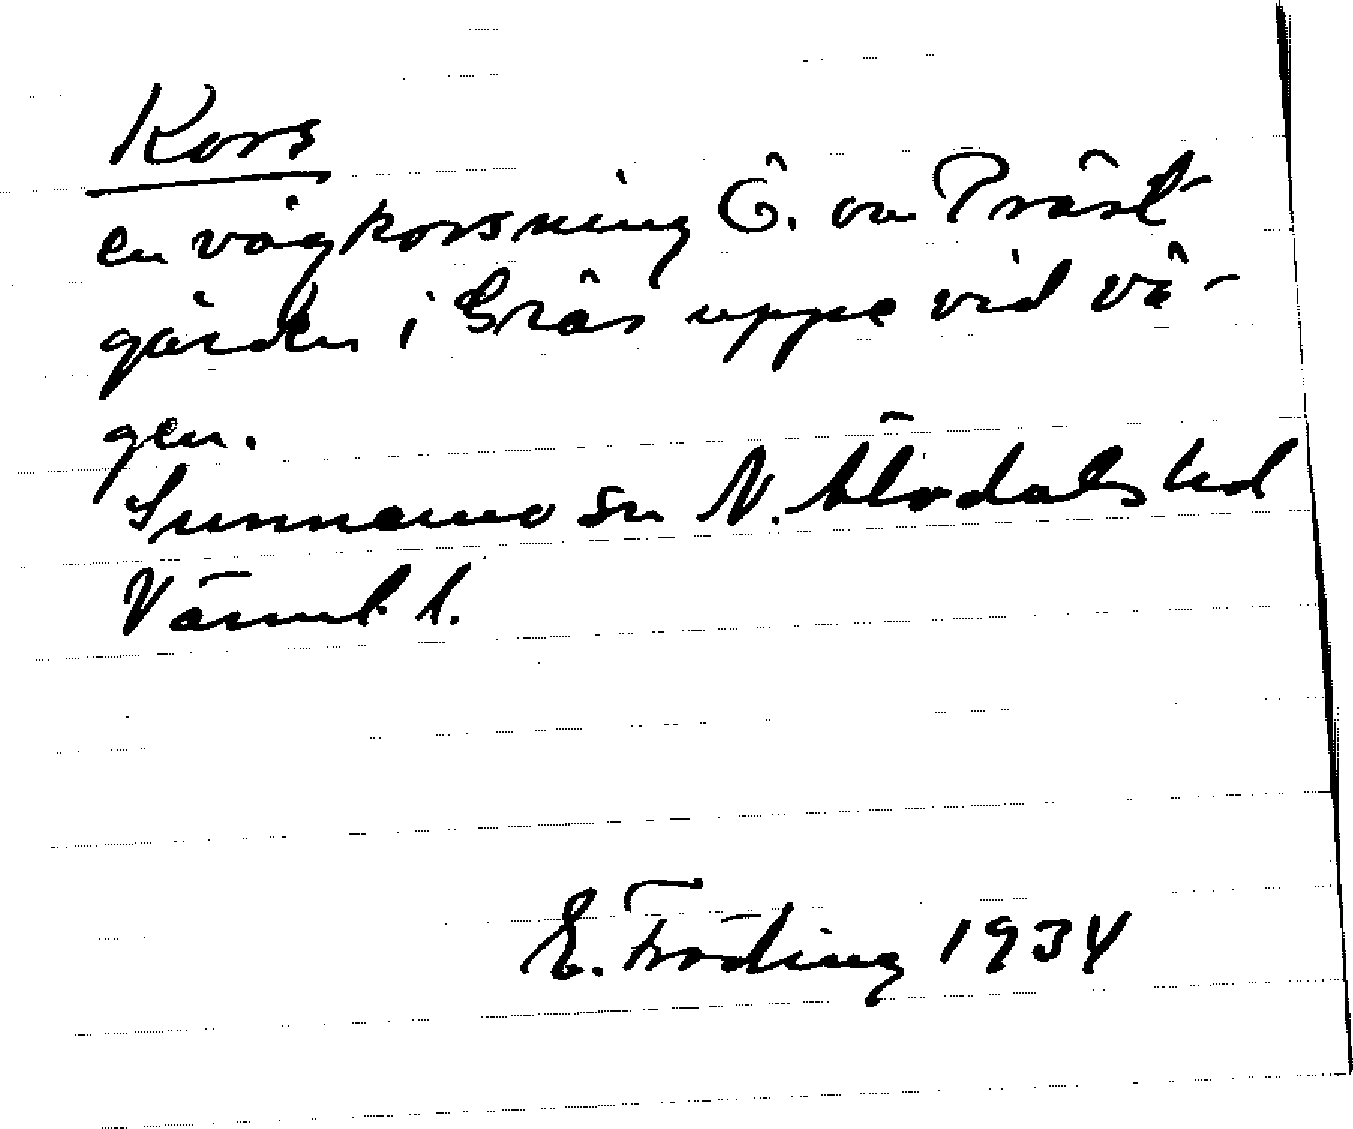 Kors
en vägkorsning Ö. om Präst-
gården i Gräs uppe vid vä-
gen.
Sunnemo sn N. Älvdals hd
Värml. l.
E. Fröding 1934